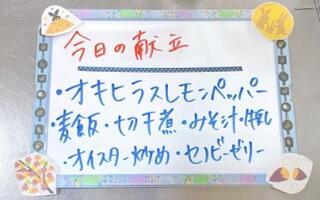 今日の献立
・オキヒラスレモンペッパー
・麦飯・切干煮・みそ汁・
・オイスター炒め・セノビーゼリー